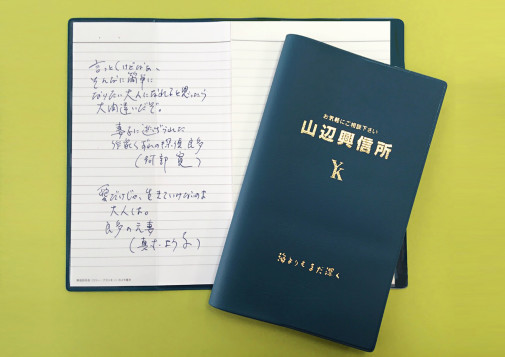 言っとくけどなぁ、
そんなに簡単に
なりたい大人になれると思ったら
大間違いだぞ。
妻子に逃げられた
作家くずれの探偵良多
(阿部 寛)
愛だけじゃ、生きていけないのよ
大人は。
良多の元妻
(真木よう子)
お気軽にご相談下さい
山辺興信所
YK
海よりもまだ深く